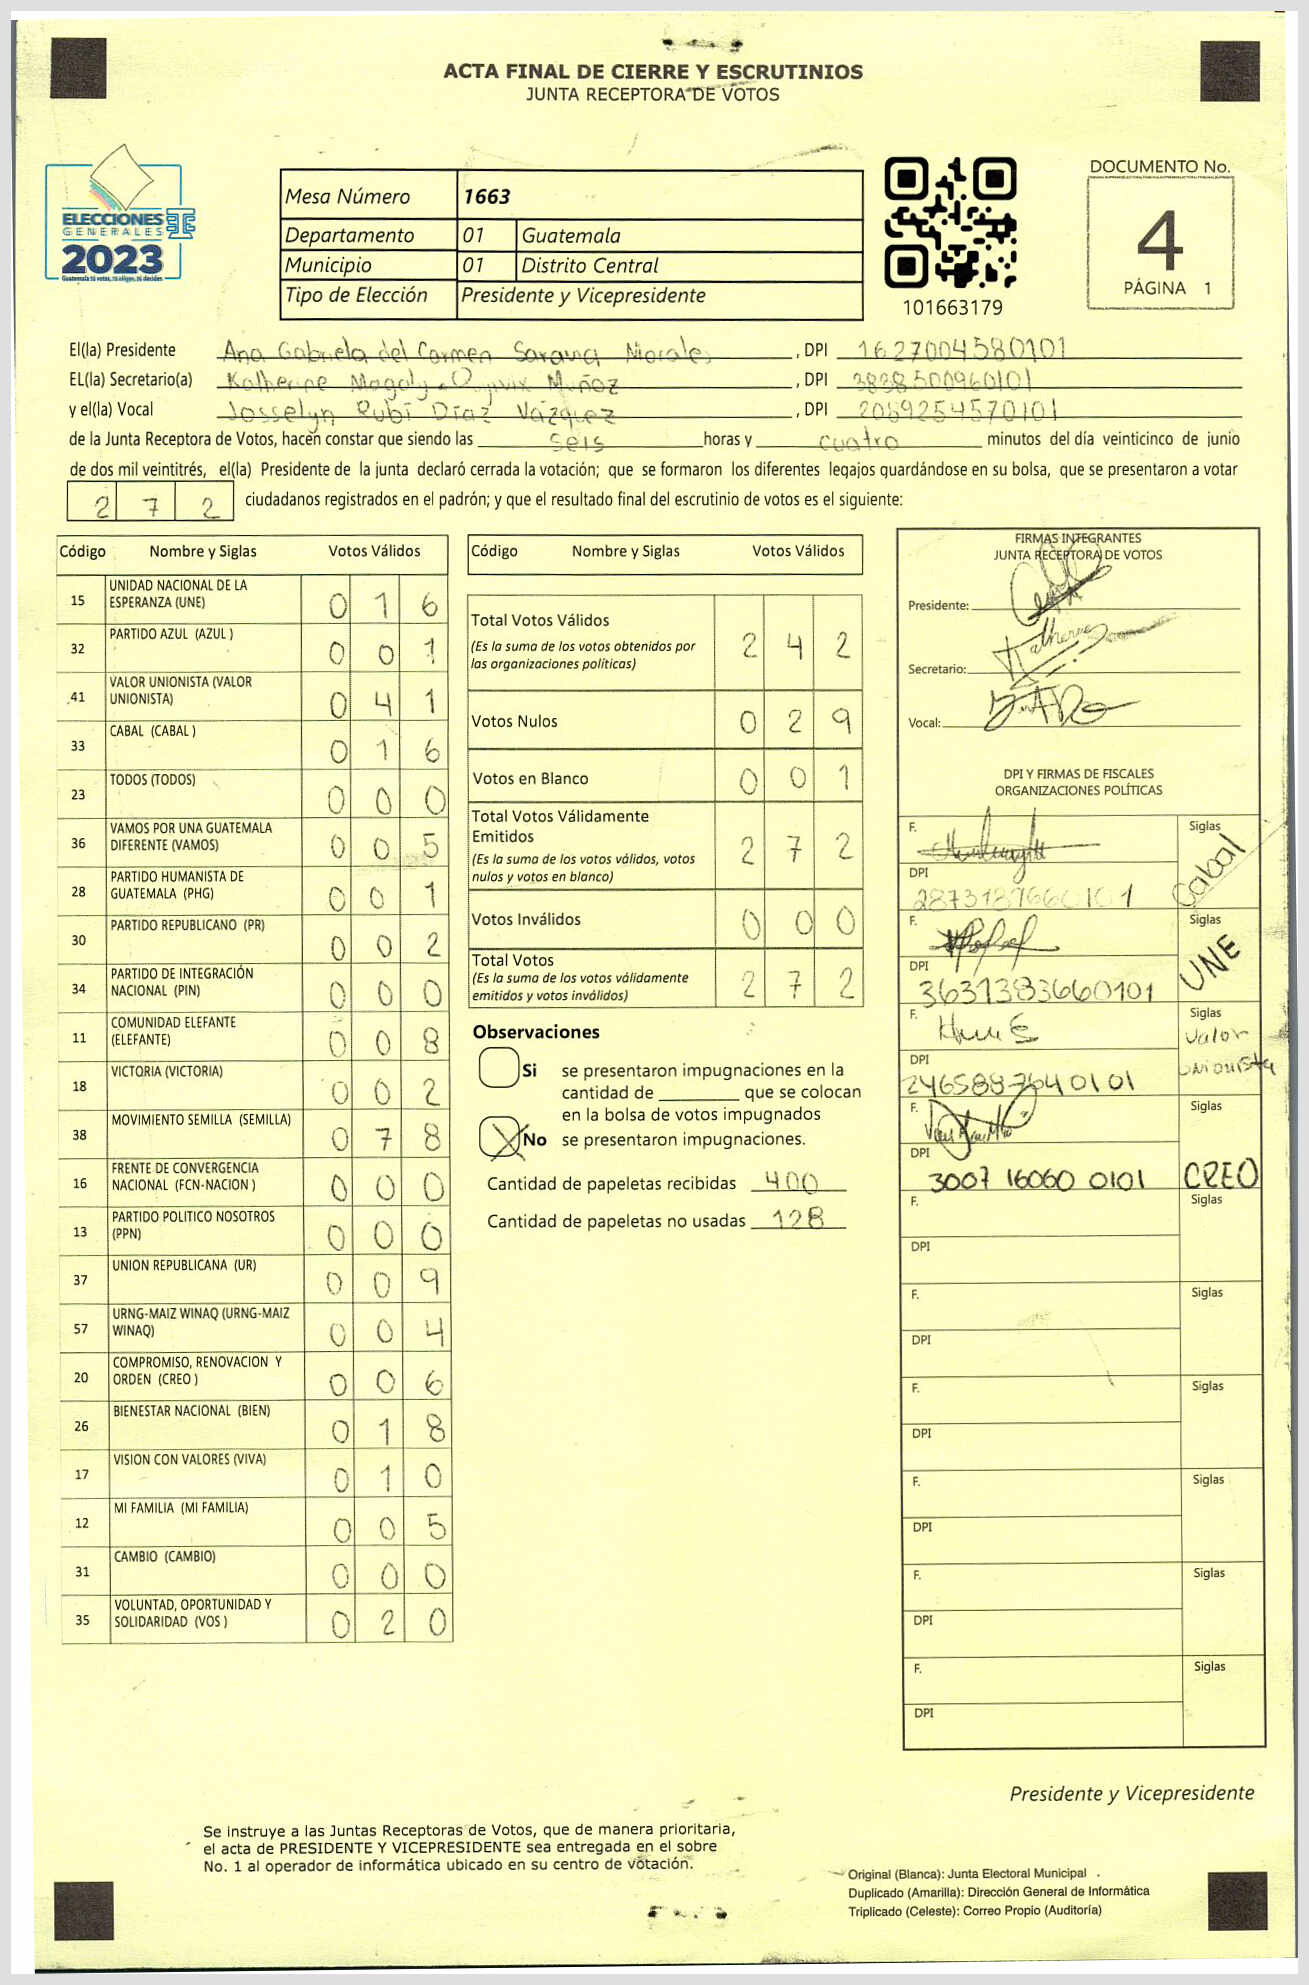 ACTA FINAL DE CIERRE Y ESCRUTINIOS
JUNTA RECEPTORA DE VOTOS
ELECCIONES
GENERALES
2023
Guatemala tú votas, tú eliges, tú decides
Mesa Número 1663
Departamento 01 Guatemala
Municipio 01 Distrito Central
Tipo de Elección Presidente y Vicepresidente
101663179
DOCUMENTO No.
4
PÁGINA 1
El(la) Presidente Ana Gabriela del Carmen Saravia Morales, DPI 1627004580101
EL(la) Secretario(a) Katherine Magaly Muñoz, DPI 3838500960101
y el(la) Vocal Josselyn Rubí Díaz Vázquez, DPI 2089254570101
de la Junta Receptora de Votos, hacen constar que siendo las seis horas y cuatro minutos del día veinticinco de junio
de dos mil veintitrés, el(la) Presidente de la junta declaró cerrada la votación; que se formaron los diferentes legajos guardándose en su bolsa, que se presentaron a votar
272 ciudadanos registrados en el padrón; y que el resultado final del escrutinio de votos es el siguiente:
Código Nombre y Siglas Votos Válidos
15 UNIDAD NACIONAL DE LA ESPERANZA (UNE) 016
32 PARTIDO AZUL (AZUL ) 001
41 VALOR UNIONISTA (VALOR UNIONISTA) 041
33 CABAL (CABAL ) 016
23 TODOS (TODOS) 000
36 VAMOS POR UNA GUATEMALA DIFERENTE (VAMOS) 005
28 PARTIDO HUMANISTA DE GUATEMALA (PHG) 001
30 PARTIDO REPUBLICANO (PR) 002
34 PARTIDO DE INTEGRACIÓN NACIONAL (PIN) 000
11 COMUNIDAD ELEFANTE (ELEFANTE) 008
18 VICTORIA (VICTORIA) 002
38 MOVIMIENTO SEMILLA (SEMILLA) 078
16 FRENTE DE CONVERGENCIA NACIONAL (FCN-NACION ) 000
13 PARTIDO POLITICO NOSOTROS (PPN) 000
37 UNION REPUBLICANA (UR) 009
57 URNG-MAIZ WINAQ (URNG-MAIZ WINAQ) 004
20 COMPROMISO, RENOVACION Y ORDEN (CREO ) 006
26 BIENESTAR NACIONAL (BIEN) 018
17 VISION CON VALORES (VIVA) 010
12 MI FAMILIA (MI FAMILIA) 005
31 CAMBIO (CAMBIO) 000
35 VOLUNTAD, OPORTUNIDAD Y SOLIDARIDAD (VOS ) 020
Código Nombre y Siglas Votos Válidos
Total Votos Válidos 242
(Es la suma de los votos obtenidos por
las organizaciones políticas)
Votos Nulos 029
Votos en Blanco 001
Total Votos Válidamente
Emitidos 272
(Es la suma de los votos válidos, votos
nulos y votos en blanco)
Votos Inválidos 000
Total Votos 272
(Es la suma de los votos válidamente
emitidos y votos inválidos)
Observaciones
Si se presentaron impugnaciones en la
cantidad de ________ que se colocan
en la bolsa de votos impugnados
X No se presentaron impugnaciones.
Cantidad de papeletas recibidas 400
Cantidad de papeletas no usadas 128
FIRMAS INTEGRANTES
JUNTA RECEPTORA DE VOTOS
Presidente:
Secretario:
Vocal:
DPI Y FIRMAS DE FISCALES
ORGANIZACIONES POLÍTICAS
F. Siglas Cabal
DPI 2873187660101
F. Siglas UNE
DPI 3637383660101
F. Siglas Valor Unionista
DPI 2465897640101
F. Siglas CREO
DPI 3007 16060 0101
F. Siglas
DPI
F. Siglas
DPI
F. Siglas
DPI
F. Siglas
DPI
F. Siglas
DPI
F. Siglas
DPI
Presidente y Vicepresidente
Se instruye a las Juntas Receptoras de Votos, que de manera prioritaria,
el acta de PRESIDENTE Y VICEPRESIDENTE sea entregada en el sobre
No. 1 al operador de informática ubicado en su centro de votación.
Original (Blanca): Junta Electoral Municipal
Duplicado (Amarilla): Dirección General de Informática
Triplicado (Celeste): Correo Propio (Auditoría)